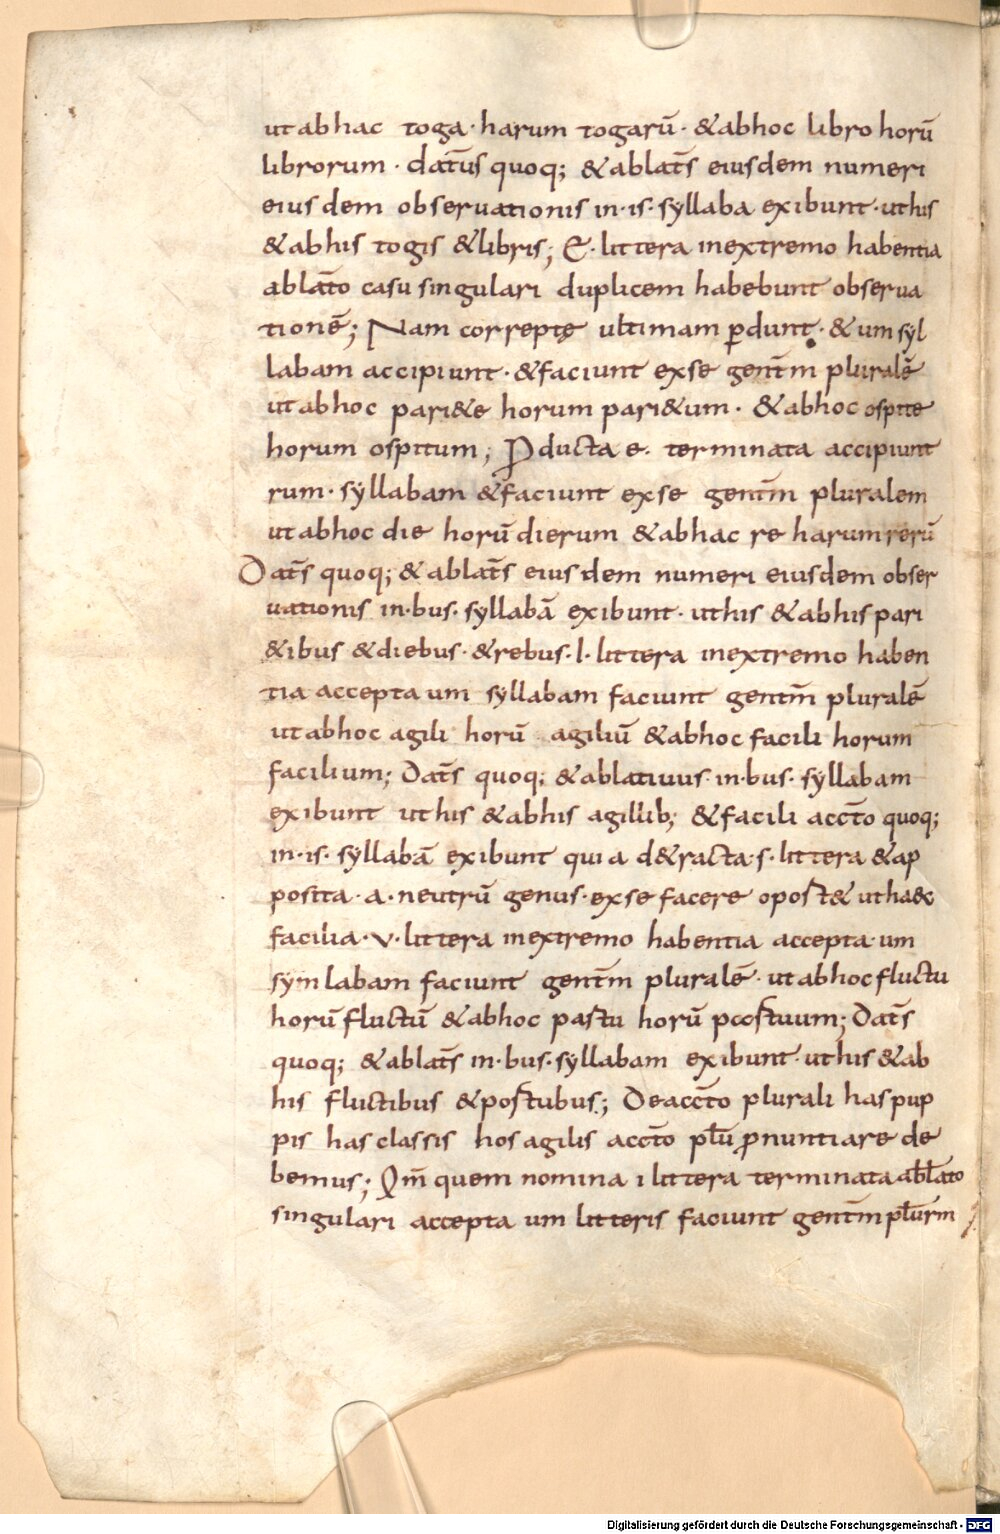 ut abhac toga · harum togarū · &abhoc libro horū
librorum · dat̄us quoq; &ablat̄s eiusdem numeri
eius dem obseruationis in · is · syllaba exibunt · uthis
&abhis togis &libris; E · littera inextremo habentia
ablat̄o casu singulari duplicem habebunt obserua
tionē; Nam correptę ultimam ꝑdunt · &um syl
labam accipiunt · &faciunt exse gent̄m pluralē
ut abhoc pari&e horum pari&um · &abhoc ospite
horum ospitum; Ꝓducta e · terminata accipiunt
rum · syllabam &faciunt exse gent̄m pluralem
ut abhoc die horū dierum &abhac re harum rerū
Dat̄s quoq; &ablat̄s eiusdem numeri eiusdem obser
uationis in · bus · syllabā exibunt · uthis &abhis pari
&ibus &diebus · &rebus · I · littera inextremo haben
tia accepta um syllabam faciunt gent̄m pluralē
ut abhoc agili horū agiliū &abhoc facili horum
facilium; Dat̄s quoq; &ablatiuus in · bus · syllabam
exibunt ut his &abhis agilib; &facili acct̄o quoq;
in · is · syllabā exibunt quia d&racta · s · littera &ap
posita · a · neutrū genus · exse facere oport& uthaec
facilia · v · littera inextremo habentia accepta · um
symlabam faciunt gent̄m pluralē · ut abhoc fluctu
horū fluctū &abhoc pastu horū pastuum; Dat̄s
quoq; &ablat̄s in · bus · syllabam exibunt · uthis &ab
his fluctibus &postubus; De acct̄o plurali has pup
pis has classis hos agilis acct̄o plū ꝓnuntiare de
bemus; Qm̄ quem nomina i littera terminata abłato
singulari accepta um litteris faciunt gent̄m płurm
Digitalisierung gefördert durch die Deutsche Forschungsgemeinschaft - DFG